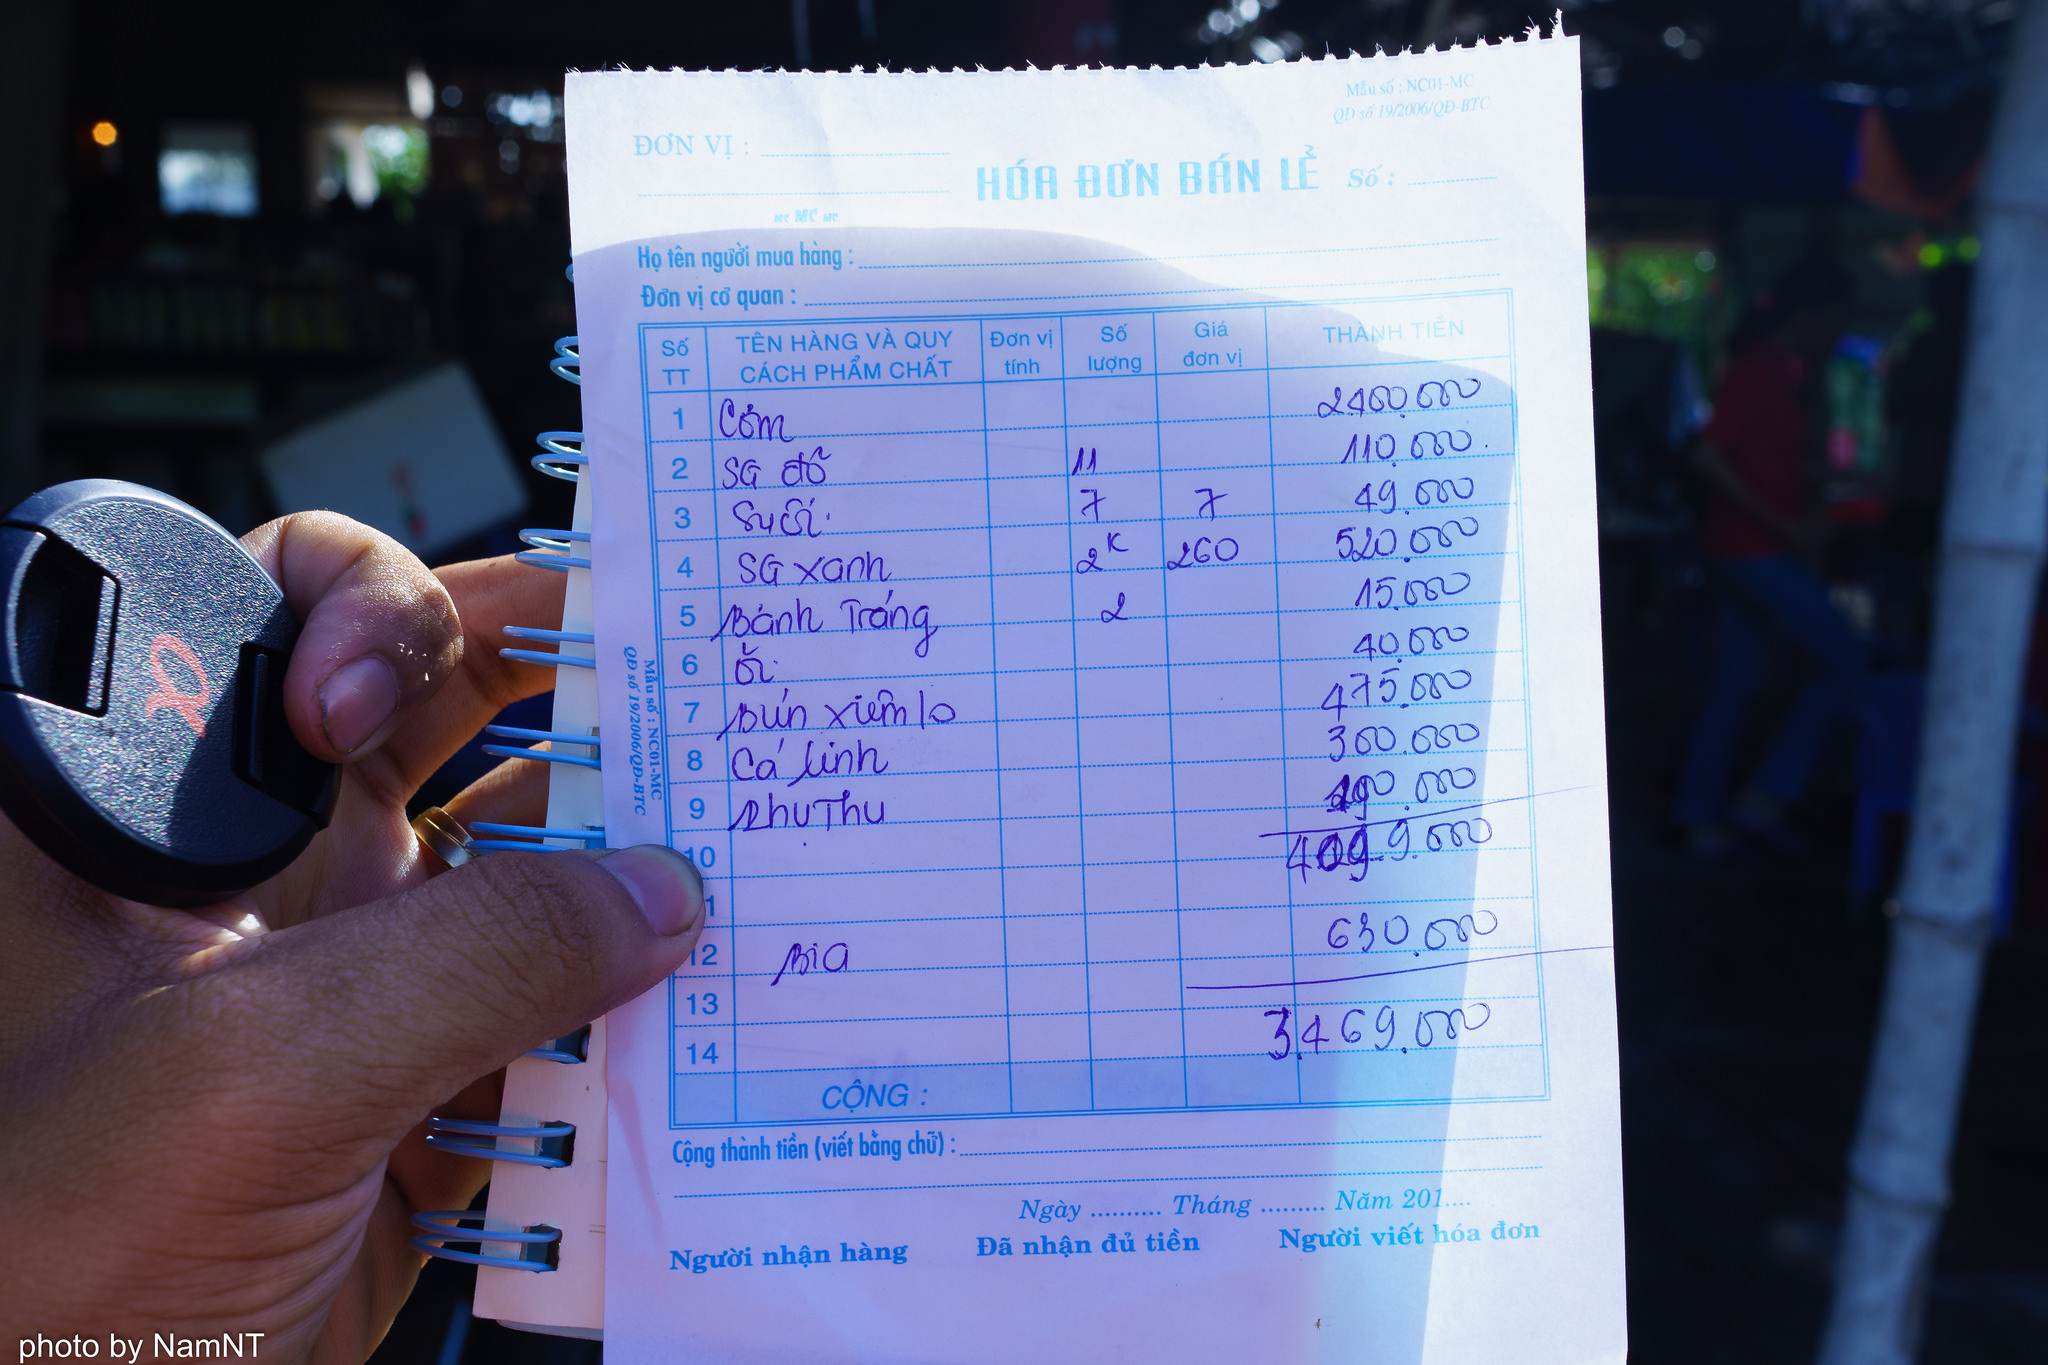 Mẫu số : NC01-MC
QĐ số 19/2006/QĐ-BTC
ĐƠN VỊ :
HÓA ĐƠN BÁN LẺ Số :
MC MC MC
Họ tên người mua hàng :
Đơn vị cơ quan :
Số TT TÊN HÀNG VÀ QUY CÁCH PHẨM CHẤT Đơn vị tính Số lượng Giá đơn vị THÀNH TIỀN
1 Cơm 2.460.000
2 SG đỏ 11 110.000
3 Suối 7 7 49.000
4 SG xanh 2K 260 520.000
5 Bánh Tráng 2 15.000
6 ổi 40.000
7 Bún xiêm lo 475.000
8 Cá linh 300.000
9 Phụ Thu 000
10 9.000
1
12 Bia 630.000
13
14 3.469.000
CỘNG :
Cộng thành tiền (viết bằng chữ) :
Ngày .......... Tháng ......... Năm 201....
Người nhận hàng Đã nhận đủ tiền Người viết hóa đơn
Mẫu số : NC01-MC
QĐ số 19/2006/QĐ-BTC
α
photo by NamNT